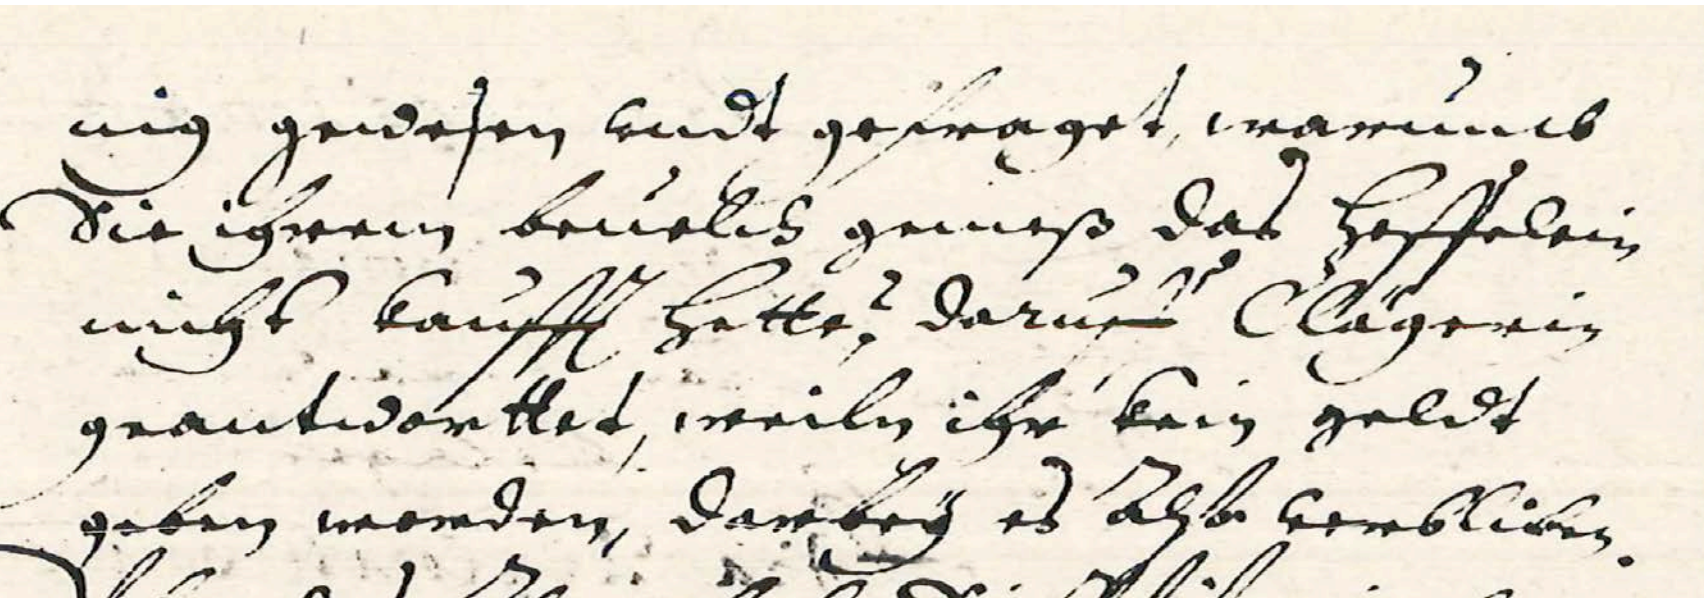 nig gewesen undt gefraget, warumb
Sie ihrem beuelch gemeß das Heffelein
nicht kaufft hette? daruf Clägerin
geantworttet, weiln ihr kein geldt
geben worden, darbeÿ es also verbliben.